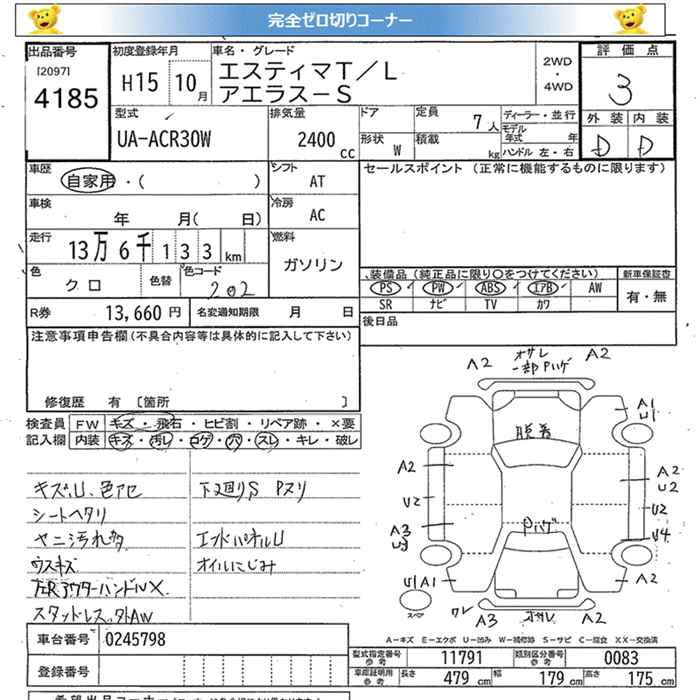 完全ゼロ切りコーナー
出品番号 初度登録年月 車名・グレード 評価点
[2097] 4185 H15 10月 エスティマT/L アエラス－S 2WD・4WD 3
型式 排気量 ドア 定員 7人 ディーラー・並行 外装 内装
UA-ACR30W 2400cc 形状 W 積載 kg モデル年式 年 ハンドル 左・右 D D
車歴 自家用・( ) シフト AT セールスポイント (正常に機能するものに限ります)
車検 年 月( 日) 冷房 AC
走行 13万6千133km 燃料 ガソリン
色 クロ 色替 色コード 202 装備品(純正品に限り○をつけてください) 新車保証書
PS PW ABS エアB AW 有・無
SR ナビ TV カワ
R券 13,660円 名変通知期限 月 日 後日品
注意事項申告欄(不具合内容等は具体的に記入して下さい)
修復歴 有 [箇所 ]
検査員 FW キズ・飛石・ヒビ割・リペア跡・×要
記入欄 内装 キズ・汚レ・コゲ・穴・スレ・キレ・破レ
キズ.U、色アセ 下廻りS Pヌリ
シートヘタリ
ヤニ汚れ多 エンドパネルU
ウスキズ オイルにじみ
左Rアウターハンドル X
スタッドレス、外AW
A2 オサレ 一部Pハゲ A2
A1
U1
脱着
A2 A2
U2
U2 U2
Pハゲ
A3 U4
U3
U1 A1 A2
スペア ワレ A3 オサレ A2
A－キズ E－エクボ U－凹み W－補修跡 S－サビ C－腐食 XX－交換済
車台番号 0245798 型式指定番号 参考 11791 類別区分番号 参考 0083
登録番号 車庫証明用 参考 長さ 479cm 幅 179cm 高さ 175cm